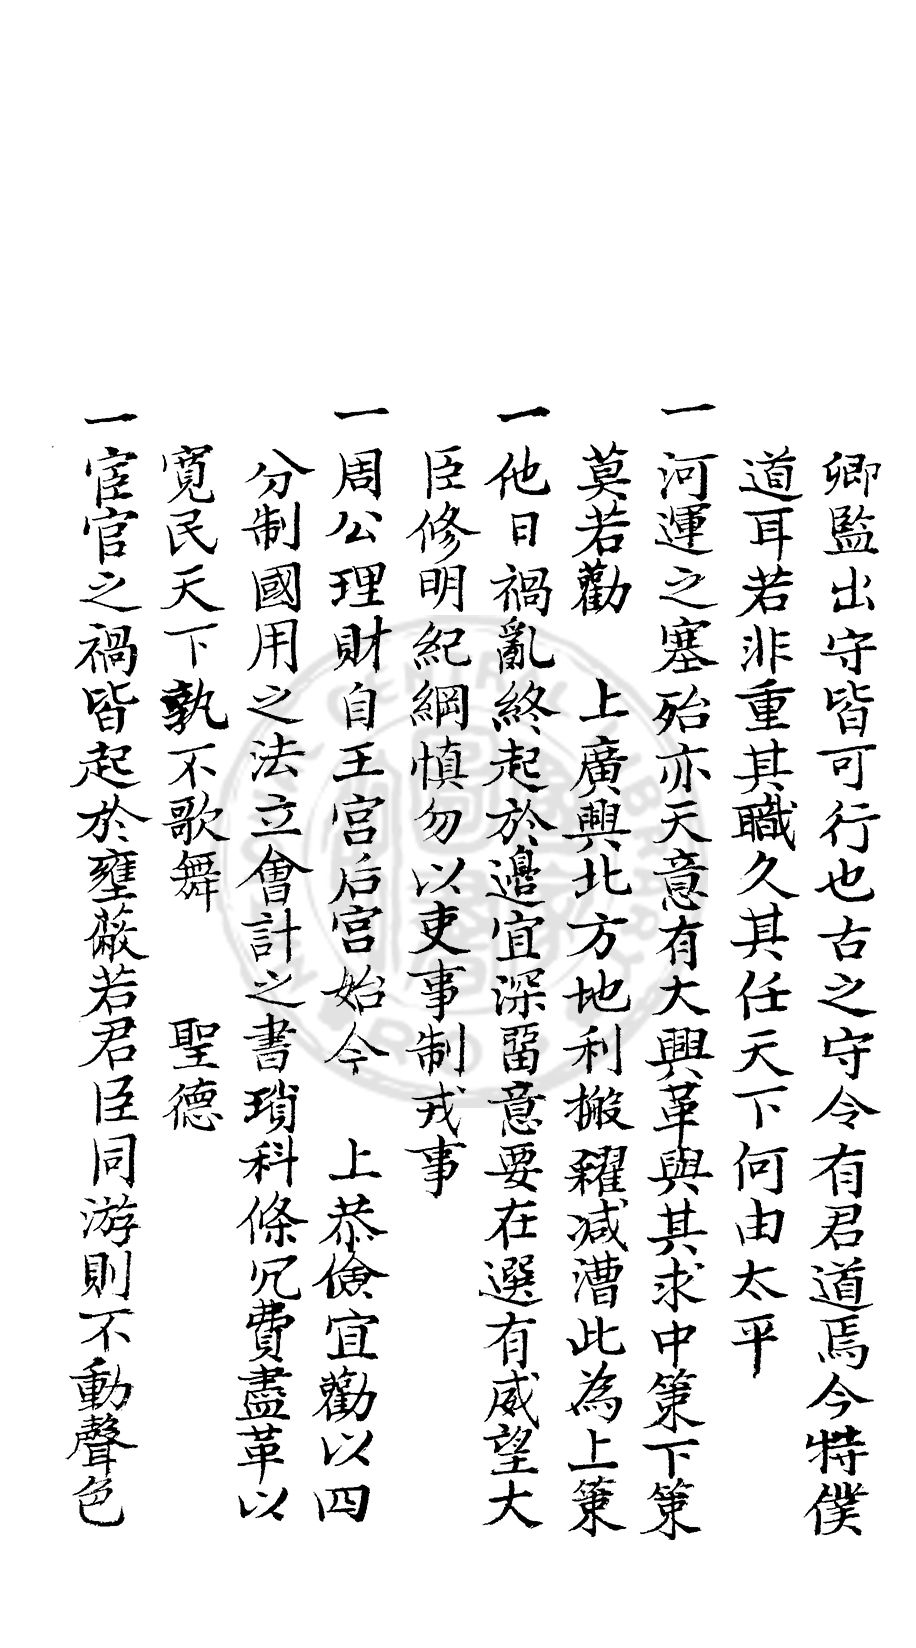 卿監出守皆可行也古之守令有君道焉今特僕
道耳若非重其職久其任天下何由太平
一河運之塞殆亦天意有大興革與其求中策下策
莫若勸　上廣興北方地利搬糴减漕此為上策
一他日禍亂終起於邊宜深畱意要在選有威望大
臣修明紀綱慎勿以吏事制戎事
一周公理財自王宫后宫始今　上恭儉宜勸以四
分制國用之法立會計之書瑣科條冗費盡革以
寛民天下孰不歌舞　聖德
一宦官之禍皆起於壅蔽若君臣同游則不動聲色